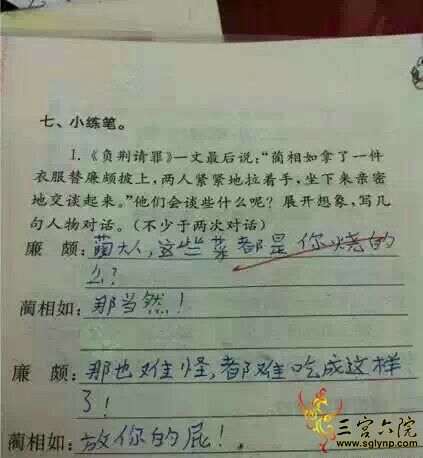 七、小练笔。
1.《负荆请罪》一文最后说:“蔺相如拿了一件
衣服替廉颇披上，两人紧紧地拉着手，坐下来亲密
地交谈起来。”他们会谈些什么呢？展开想象，写几
句人物对话。(不少于两次对话)
廉 颇:蔺大人,这些菜都是你烧的
么?
蔺相如:那当然!
廉 颇:那也难怪,都难吃成这样
了!
蔺相如:放你的屁!
三宫六院
www.sglynp.com